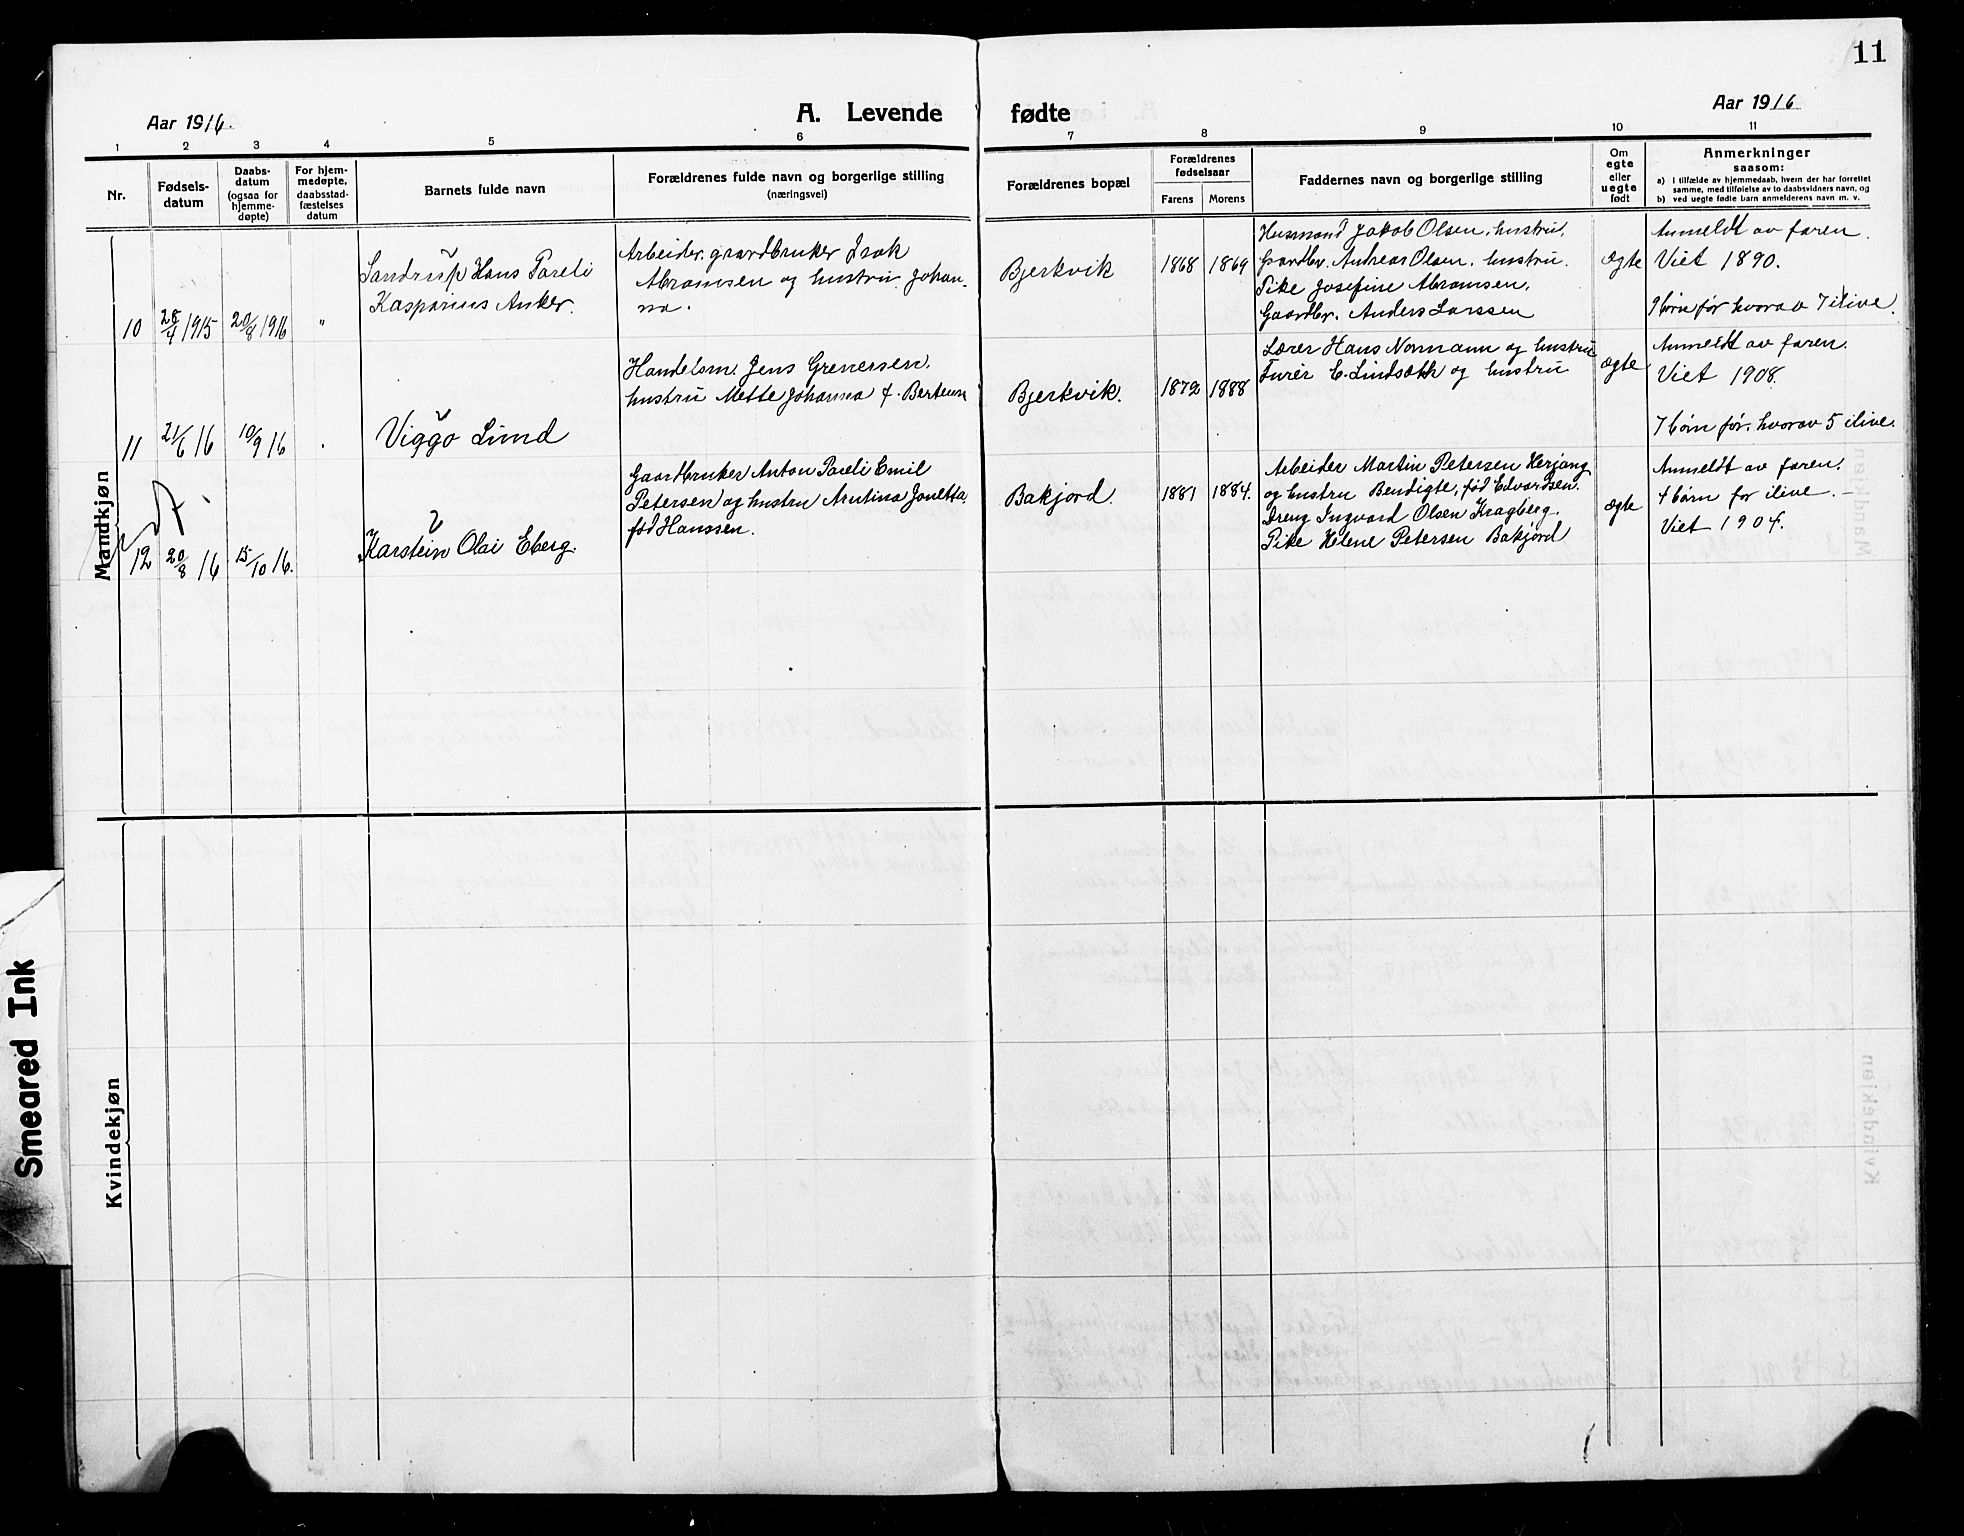 11
Aar 1916.
A. Levende fødte
Aar 1916
1 2 3 4 5 6 7 8 9 10 11
Nr.
Fødsels-
datum
Daabs-
datum
(ogsaa for
hjemme-
døpte)
For hjem-
medøpte,
daabsstad-
fæstelses
datum
Barnets fulde navn
Forældrenes fulde navn og borgerlige stilling
(næringsvei)
Forældrenes bopæl
Forældrenes
fødselsaar
Farens Morens
Faddernes navn og borgerlige stilling
Om
egte
eller
uegte
født
Anmerkninger
saasom:
a) i tilfælde av hjemmedaab, hvem der har forrettet
samme, med tilføielse av to daabsvidners navn, og
b) ved uegte fødte barn anmelderens navn m. v.
Mandkjøn
10
28/4 1915
20/8 1916
"
Sandrup Hans Pareli
Kasparius Anker.
Arbeider, gaardbruker Isak
Abramsen og hustru Johan-
na.
Bjerkvik
1868 1869
Husmand Jakob Olsen, hustru,
Gaardbr. Andreas Olsen, hustru.
Pike Josefine Abramsen,
Gaardbr. Anders Larssen
Ægte
Anmeldt av faren.
Viet 1890.
9 børn før hvorav 7 ilive.
11
21/6 16
10/9 16
Viggo Lund
Handelsm. Jens Grenersen,
hustru Mette Johanna f. Berteusen
Bjerkvik.
1872 1888
Lærer Hans Normann og hustru
Furér E. Lindsæth og hustru
ægte
Anmeldt av faren.
Viet 1908.
7 børn før, hvorav 5 ilive.
12
20/8 16
15/10 16.
Karstein Olai Eberg.
Gaardbruker Anton Pareli Emil
Petersen og hustru Antina Jonetta,
fød Hanssen.
Bakjord
1881 1884.
Arbeider Martin Petersen Herjang
og hustru Bendigte, fød Edvardsen.
Dreng Ingvard Olsen Kragberg.
Pike Helene Petersen Bakjord
ægte
Anmeldt av faren.
4 børn før ilive.
Viet 1904.
Kvindekjøn
Smeared Ink